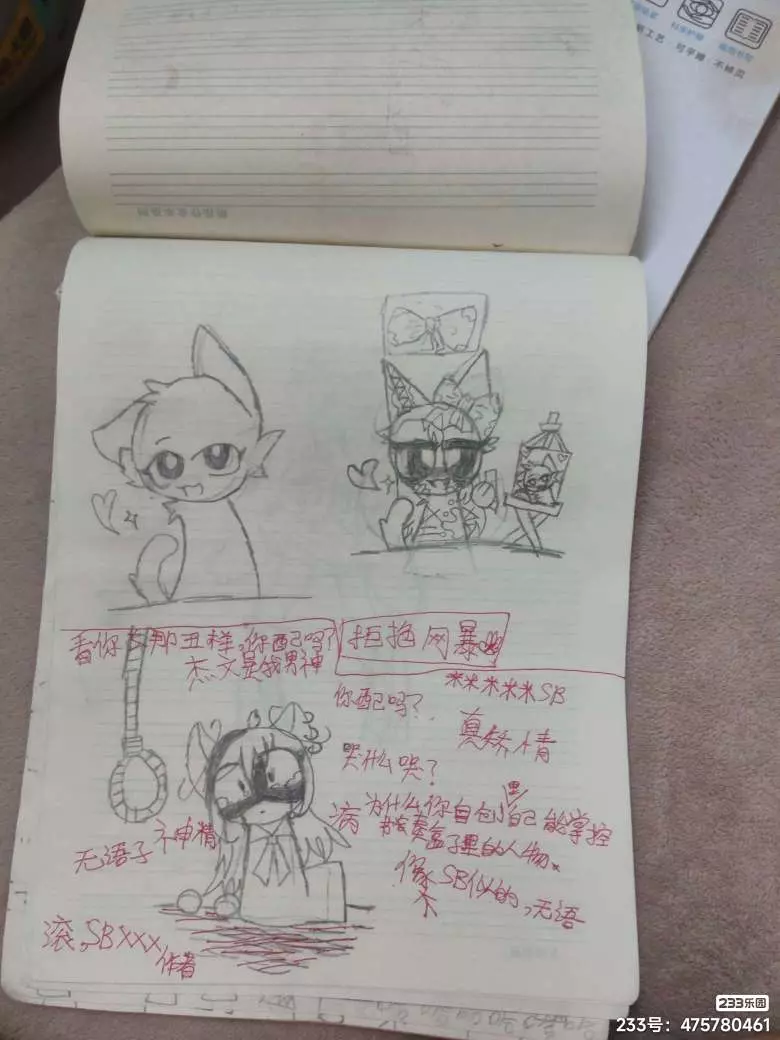 工艺 可平摊 不掉页
看你那丑样,你配吗?
杰文是我男神
拒绝网暴
你配吗?
米米米米米SB
真矫情
哭什么哭?
为什么你自包小自己能掌控
里
病
盒子里的人物。
像SB似的,无语
神精
无语子
滚。SBXXX
作者
233乐园
233号:475780461